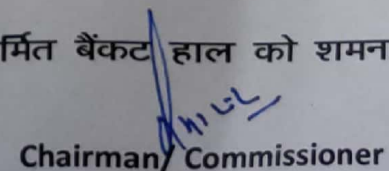 र्मित बैंकट हाल को शमन
Chairman/ Commissioner